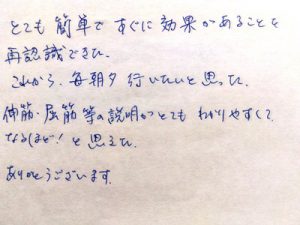 とても簡単ですぐに効果があることを
再認識できた。
これから、毎朝夕行いたいと思った。
伸筋・屈筋等の説明がとてもわかりやすくて
なるほど!と思えた。
ありがとうございます。